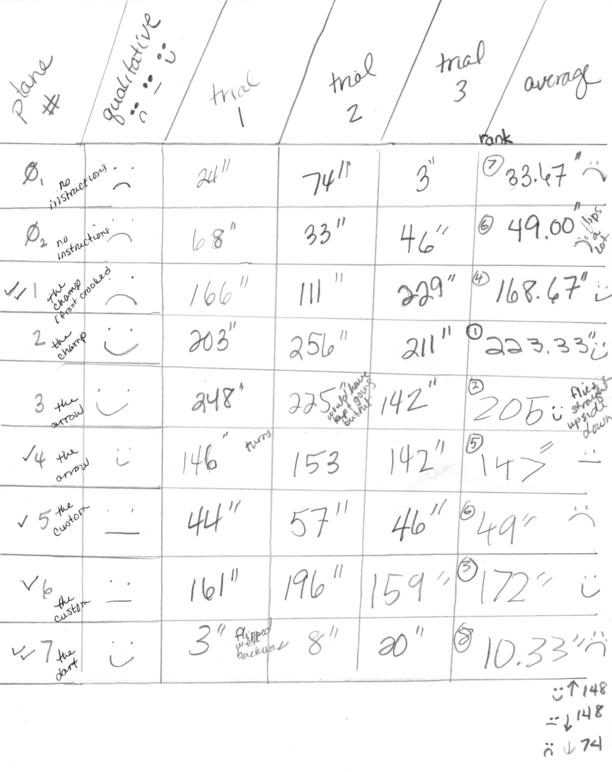 plane # qualitative trial 1 trial 2 trial 3 average
rank
Ø1 no instructions 24" 74" 3" 7 33.67"
Ø2 no instructions 68" 33" 46" 6 49.00" flips a lot
✓✓1 the champ (front crooked) 166" 111" 229" 4 168.67"
2 the champ 203" 256" 211" 1 223.33"
3 the arrow 248" 225" would have kept going but hit 142" 2 205 flies straight upside down
✓4 the arrow 146" turns 153 142" 5 147"
✓5 the custom 44" 57" 46" 6 49"
✓6 the custom 161" 196" 159" 3 172"
✓✓7 the dart 3" flipped went backwards 8" 20" 8 10.33"
↑148
↓148
↓74